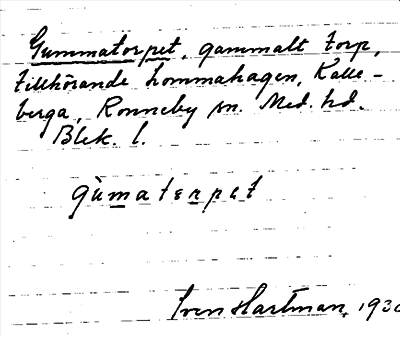 Gummatorpet, gammalt torp,
tillhörande hommahagen, Kalle-
berga, Ronneby sn. Med. hd.
Blek. l.
gùmatɛrpɛt
Sven Hartman, 193